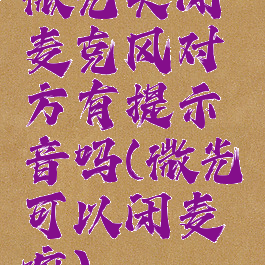 微先关闭
麦克风对
方有提示
音吗(微先
可以闭麦